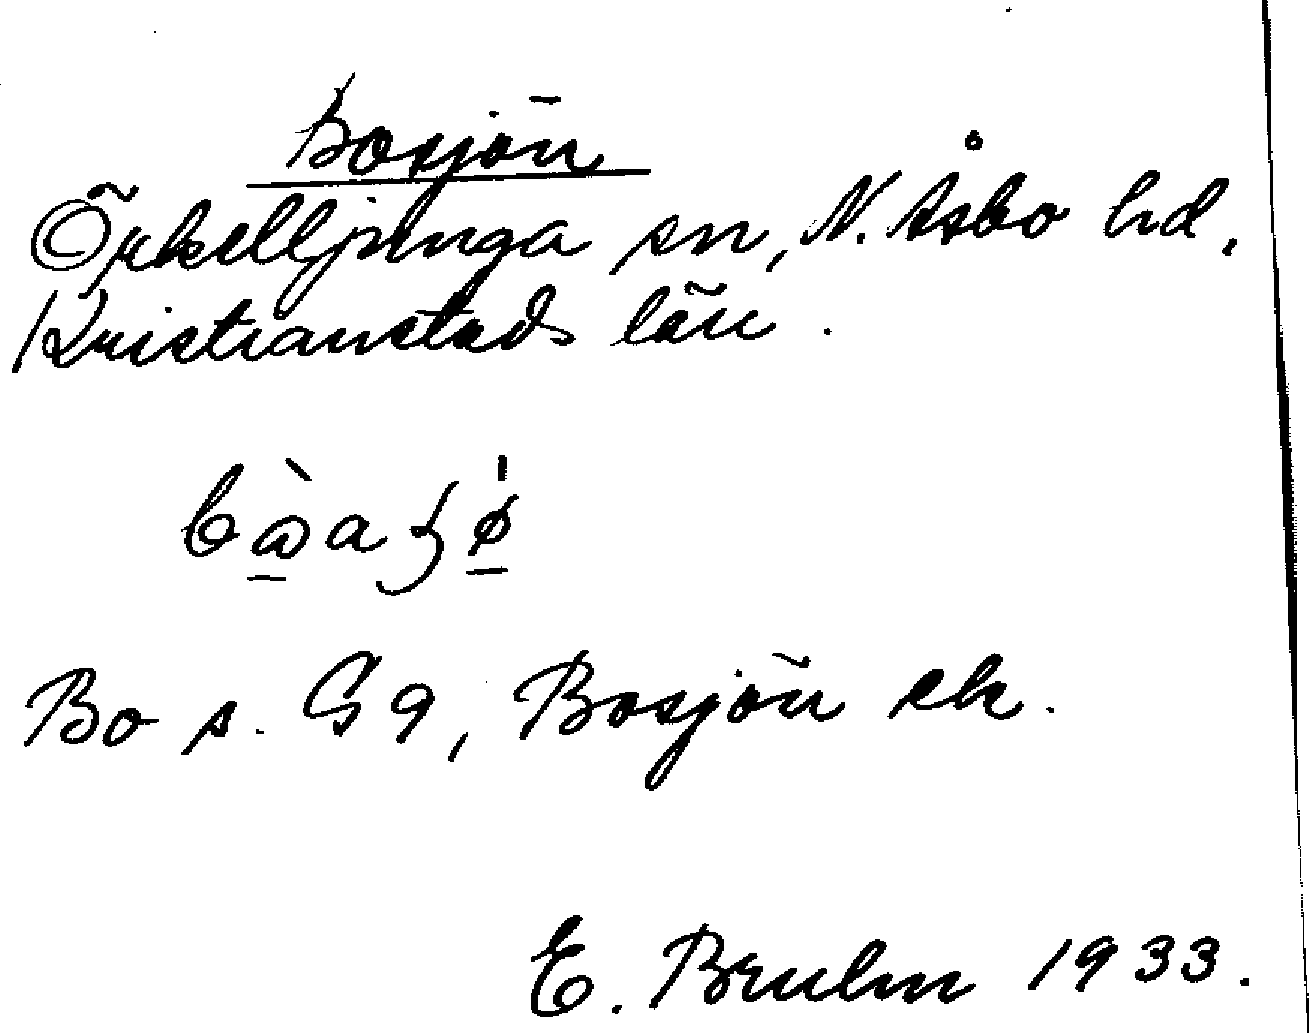 Bosjön
Örkelljunga sn, N. Åsbo hd,
Kristianstads län.
Bo s. G 9, Bosjön ek.
E. Bruhn 1933.